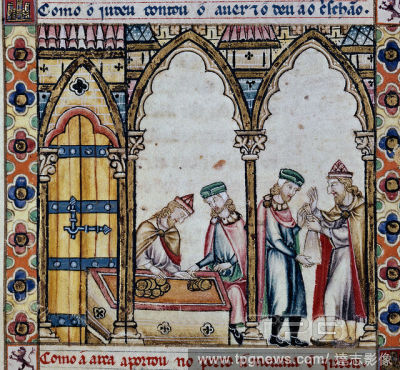 Como o judeu contou o auer 7 o deu ao crischão.
Como a arca aportou no porto
TPG
www.tpgnews.com / 達志影像